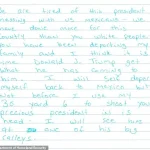 We are tired of this president
messing with us mexicans - we
have done more for this
country than you white people
you have been deporting my
family and I think it is
time Donald J. Trump get
what he has coming to
I will self deport
myself back to mexico but
not before I use my
30 yard 6 to shoot your
precious president in his
head - I will see him
at one of his big
ralleys.